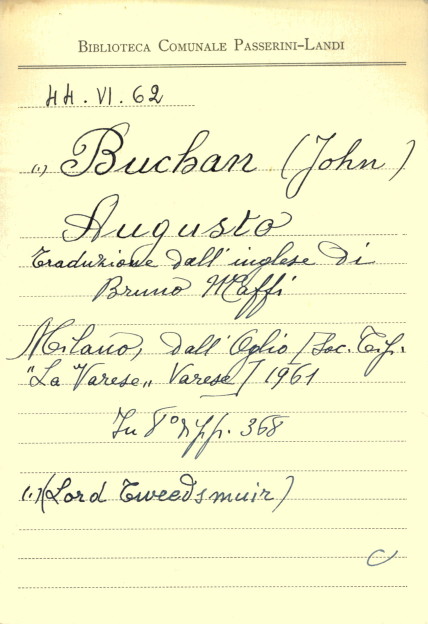 BIBLIOTECA COMUNALE PASSERINI-LANDI
44.VI.62
(.) Buchan (John)
Augusto
Traduzione dall'inglese di
Bruno Maffi
Milano, dall'Oglio [Soc. Tip.
"La Varese„ Varese] 1961
In 8° di pp. 368
(.) (Lord Tweedsmuir)
C